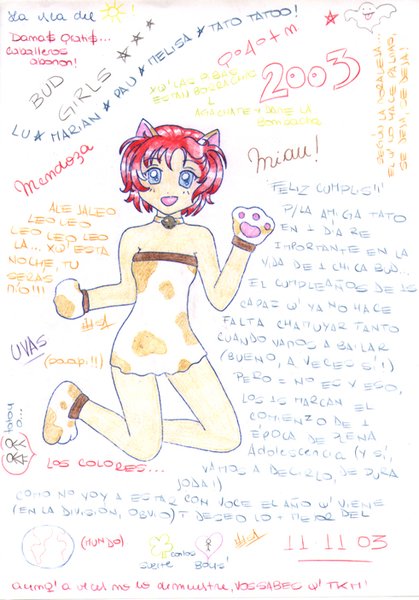 La vida de!
Dama$ Grati$...
Caballeros
abonan!
BUD
GIRLS
LU ★ MARIAN ★ PAU ★ MELISA ★ TATO TATOO!
2003
Mendoza
Miau!
ALE JALEO
LEO LEO
LEO LEO LEO
LA... XQ' ESTA
NOCHE, TU
SERÁS
MÍO!!!
UVAS
LOS COLORES...
¡FELIZ CUMPLIS!!!
P/LA AMIGA TATO
EN 1 DIA RE
IMPORTANTE EN LA
VIDA DE 1 CHICA BUD...
EL CUMPLEAÑOS DE 15
CAPAZ Q' YA NO HACE
FALTA CHAMUYAR TANTO
CUANDO VAMOS A BAILAR
(BUENO, A VECES SÍ!)
PERO = NO ES X ESO,
LOS 15 MARCAN EL
COMIENZO DE LA
ÉPOCA DE PLENA
Adolescencia (Y SÍ,
VAMOS A DECIRLO, DE PURA
JODA!)
COMO NO VOY A ESTAR CON VOCE EL AÑO Q' VIENE
(EN LA DIVISIÓN, OBVIO) T DESEO LO + MEJOR DEL
(MUNDO)
SUERTE
con los
BOYS!
11 11 03
aunq' a veces no lo demuestre, VOS SABES Q' TKM!